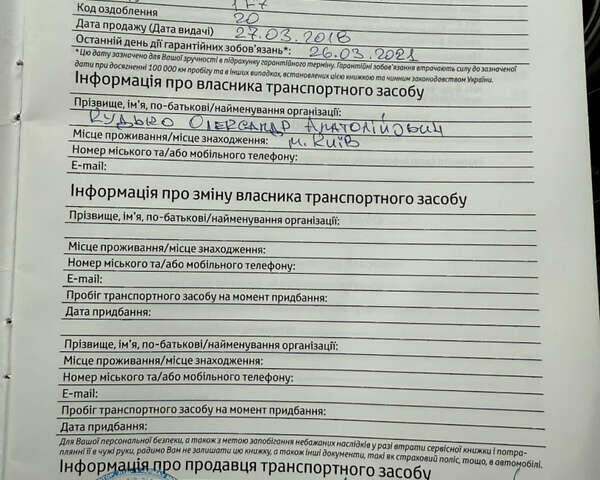 Код оздоблення 1F7
20
Дата продажу (Дата видачі) 27.03.2018
Останній день дії гарантійних зобов'язань*: 26.03.2021
*Цю дату зазначено для Вашої зручності в підрахунку гарантійного терміну. Гарантійні зобов'язання втрачають силу до зазначеної
дати при досягненні 100 000 км пробігу та в інших випадках, встановлених цією книжкою та чинним законодавством України.
Інформація про власника транспортного засобу
Прізвище, ім'я, по-батькові/найменування організації:
Кудько Олександр Анатолійович
Місце проживання/місце знаходження: м. Київ
Номер міського та/або мобільного телефону:
E-mail:
Інформація про зміну власника транспортного засобу
Прізвище, ім'я, по-батькові/найменування організації:
Місце проживання/місце знаходження:
Номер міського та/або мобільного телефону:
E-mail:
Пробіг транспортного засобу на момент придбання:
Дата придбання:
Прізвище, ім'я, по-батькові/найменування організації:
Місце проживання/місце знаходження:
Номер міського та/або мобільного телефону:
E-mail:
Пробіг транспортного засобу на момент придбання:
Дата придбання:
Для Вашої персональної безпеки, а також з метою запобігання небажаних наслідків у разі втрати сервісної книжки і потра-
плянні її в чужі руки, радимо Вам не залишати цю книжку, а також інші документи, такі як страховий поліс, тощо, в автомобілі.
Інформація про продавця транспортного засобу